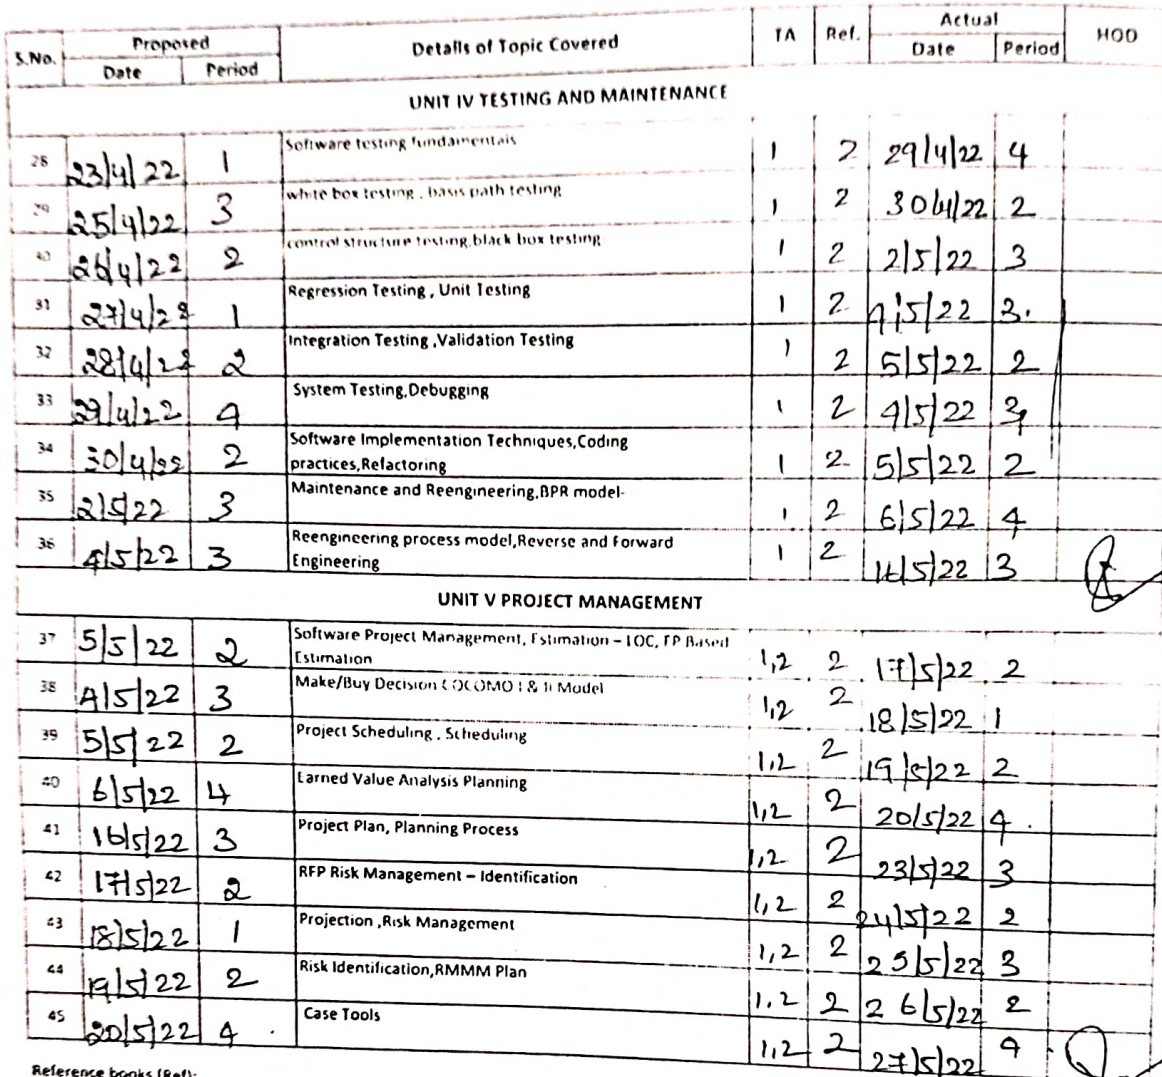 S.No. Proposed Details of Topic Covered TA Ref. Actual HOD
Date Period Date Period
UNIT IV TESTING AND MAINTENANCE
28 23/4/22 1 Software testing fundamentals 1 2 29/4/22 4
29 25/4/22 3 white box testing , basis path testing 1 2 30/4/22 2
26/4/22 2 control structure testing,black box testing 1 2 2/5/22 3
31 27/4/22 1 Regression Testing , Unit Testing 1 2 4/5/22 3.
32 28/4/22 2 Integration Testing ,Validation Testing 1 2 5/5/22 2
33 29/4/22 4 System Testing,Debugging 1 2 4/5/22 3
34 30/4/22 2 Software Implementation Techniques,Coding
practices,Refactoring 1 2 5/5/22 2
35 2/5/22 3 Maintenance and Reengineering,BPR model- 1 2 6/5/22 4
36 4/5/22 3 Reengineering process model,Reverse and Forward
Engineering 1 2 16/5/22 3
UNIT V PROJECT MANAGEMENT
37 5/5/22 2 Software Project Management, Estimation – LOC, FP Based
Estimation 1,2 2 17/5/22 2
38 4/5/22 3 Make/Buy Decision COCOMO I & II Model 1,2 2 18/5/22 1
39 5/5/22 2 Project Scheduling , Scheduling 1,2 2 19/5/22 2
40 6/5/22 4 Earned Value Analysis Planning 1,2 2 20/5/22 4
41 16/5/22 3 Project Plan, Planning Process 1,2 2 23/5/22 3
42 17/5/22 2 RFP Risk Management – Identification 1,2 2 24/5/22 2
43 18/5/22 1 Projection ,Risk Management 1,2 2 25/5/22 3
44 19/5/22 2 Risk Identification,RMMM Plan 1,2 2 26/5/22 2
45 20/5/22 4 Case Tools 1,2 2 27/5/22 4
Reference books (Ref):-